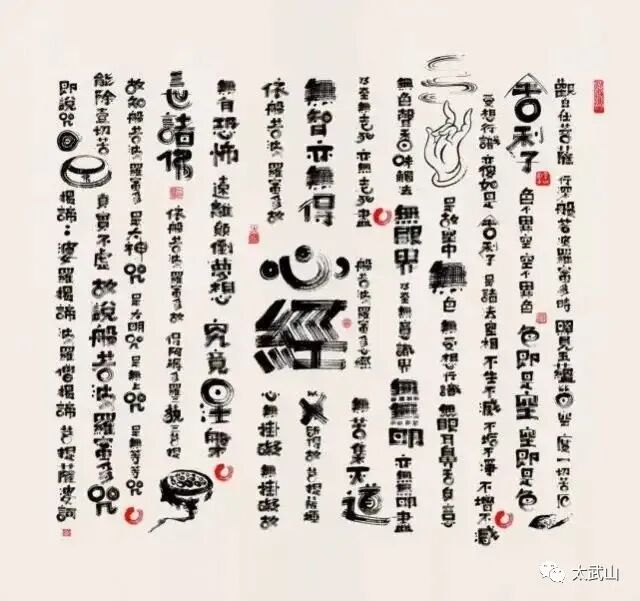 觀自在菩薩 行深般若波羅蜜多時 照見五蘊皆空 度一切苦厄
舍利子 色不異空 空不異色 色即是空 空即是色
受想行識 亦復如是 舍利子 是諸法空相 不生不滅 不垢不淨 不增不減
是故空中 無色 無受想行識 無眼耳鼻舌身意
無色聲香味觸法 無眼界 乃至無意識界 無無明 亦無無明盡
乃至無老死 亦無老死盡
無苦集 道
無智亦無得
以 所得故 菩提薩埵
依般若波羅蜜多故
心無掛礙 無掛礙故
心經
般若波羅蜜多心經
無有恐怖 遠離顛倒夢想 究竟涅槃
三世諸佛 依般若波羅蜜多故 得阿耨多羅三藐三菩提
故知般若波羅蜜多 是大神咒 是大明咒 是無上咒 是無等等咒
能除壹切苦 真實不虛 故說般若波羅蜜多咒
即說咒曰 揭諦= 婆羅揭諦 波羅僧揭諦 菩提薩婆訶
太武山